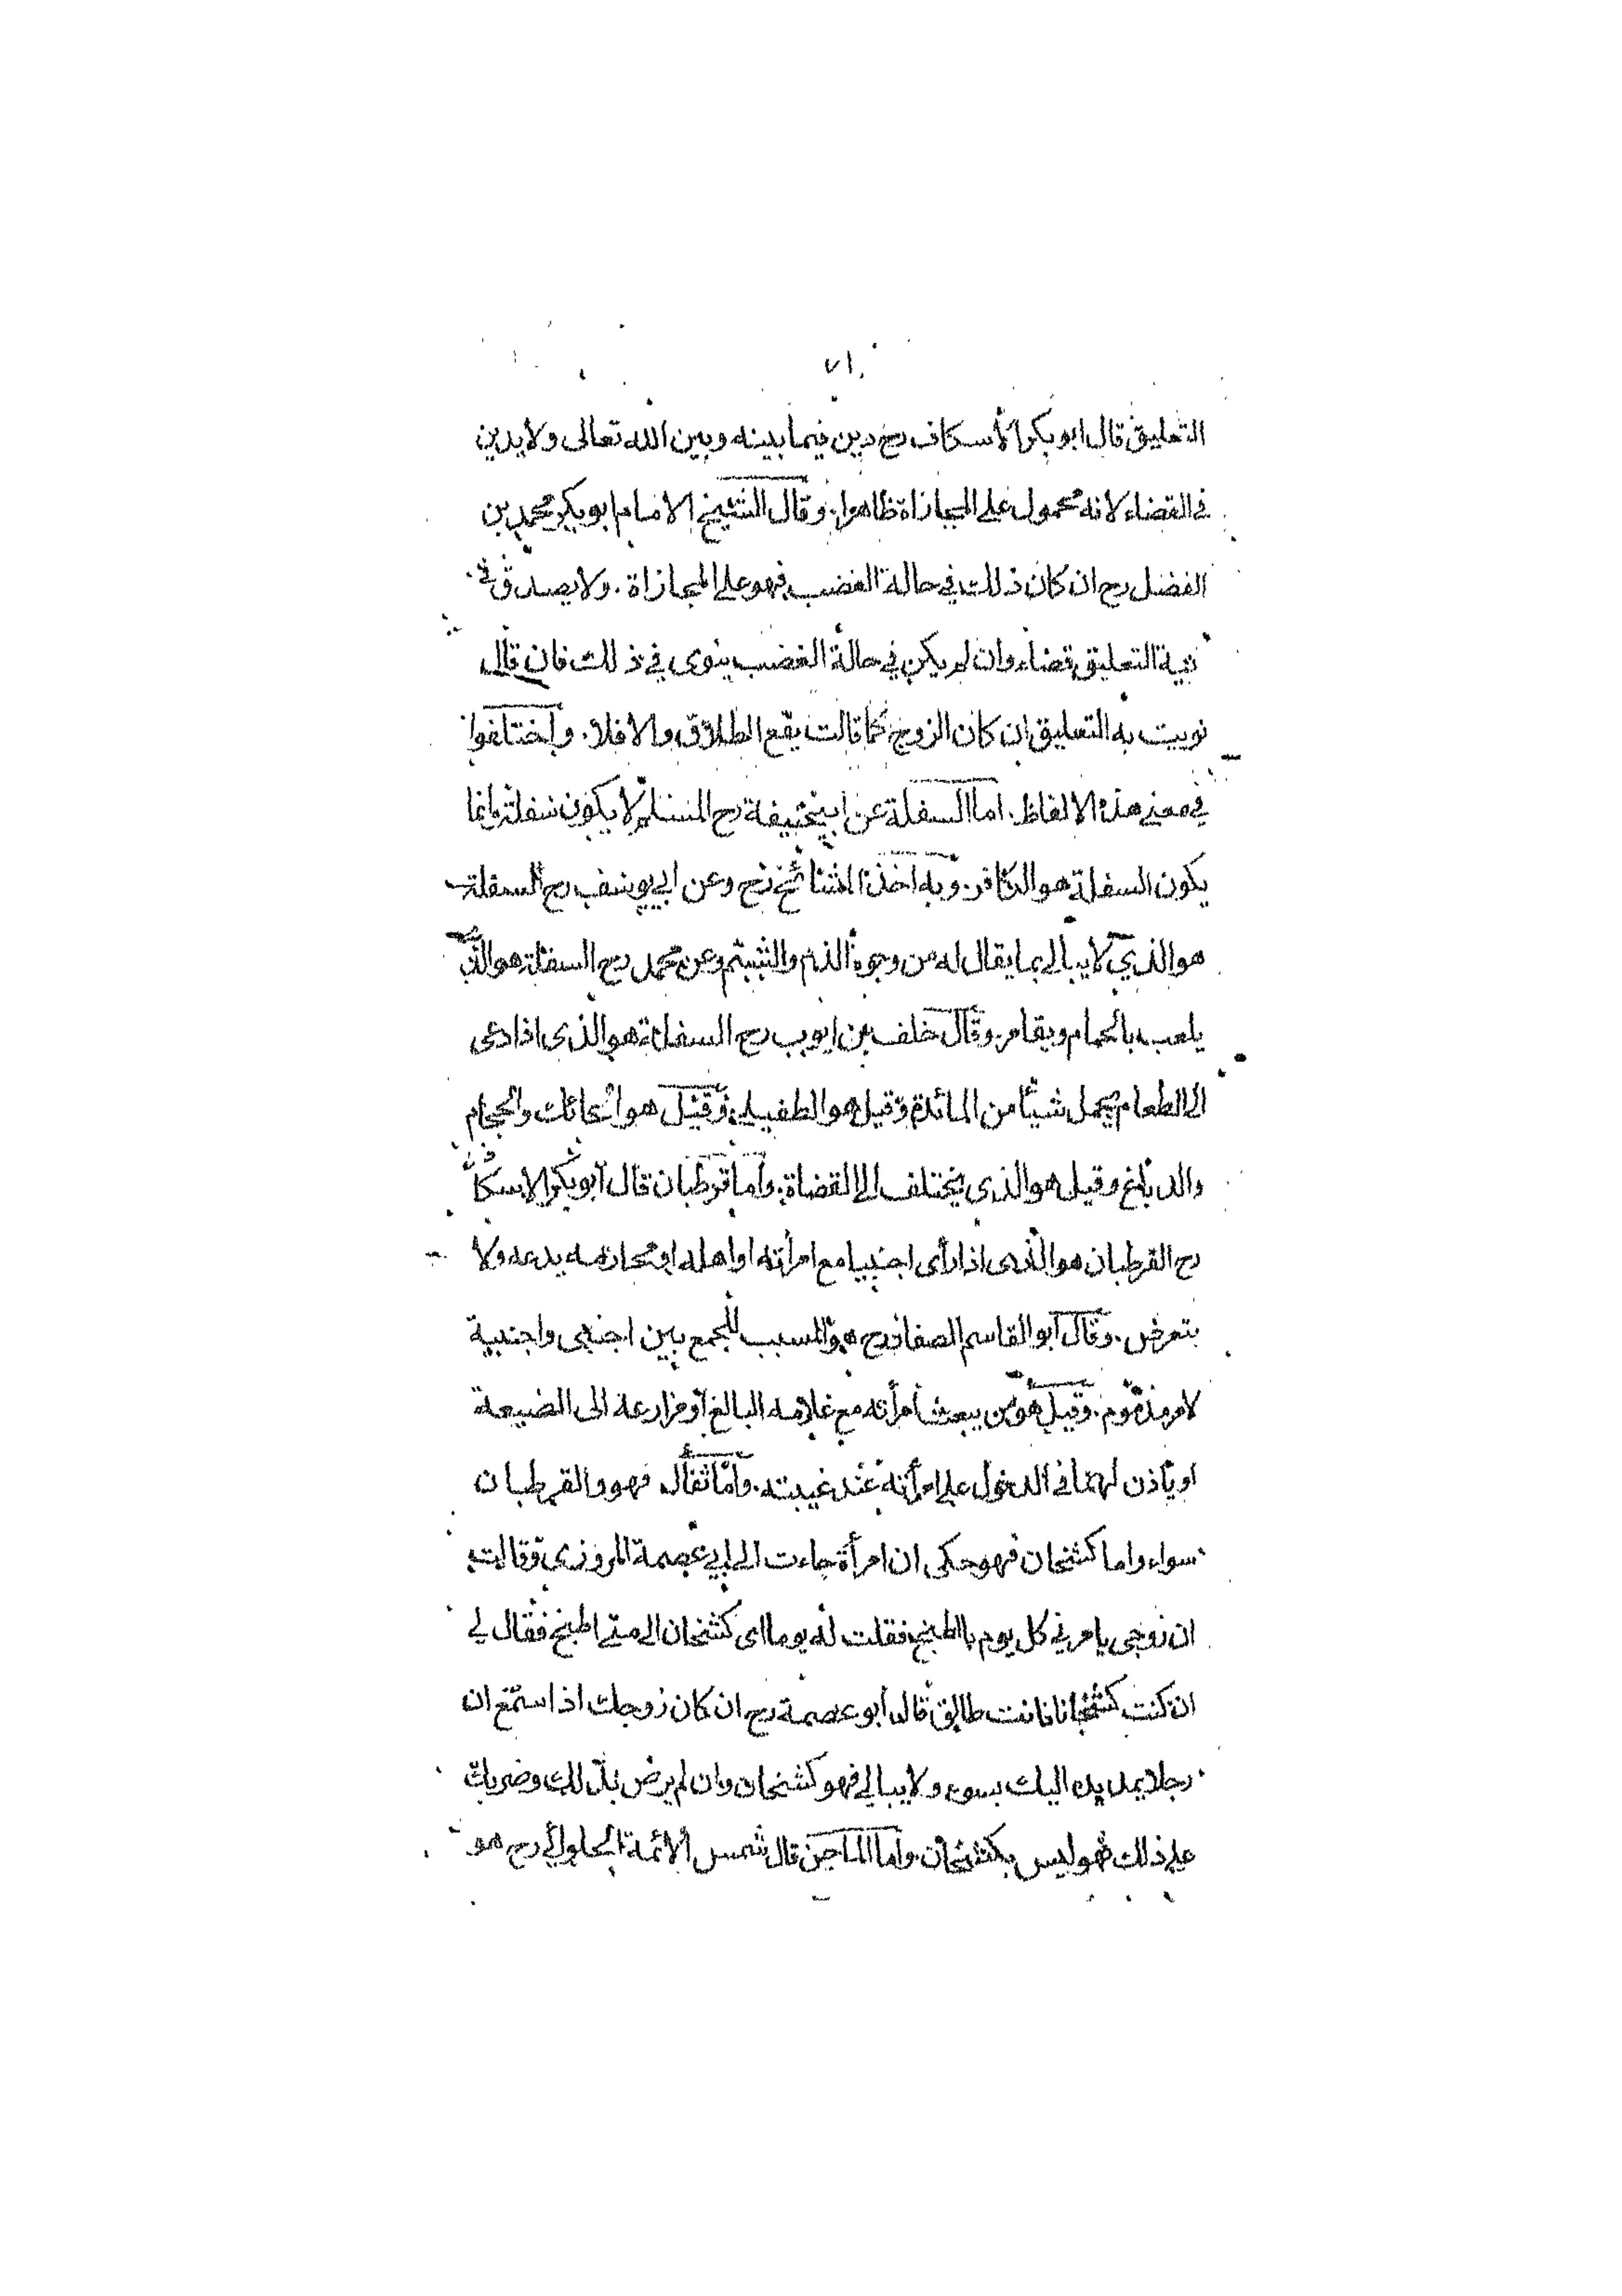 ٧١
التعليق قال ابو بكر الأسكاف رح دين فيما بينه وبين الله تعالى ولا يدين
فى القضاء لانه محمول على المجازاة ظاهرا. وقال الشيخ الامام ابو بكر محمد بن
الفضل رح ان كان ذلك في حالة الغضب فهو على المجازاة. ولا يصدق في
نية التعليق قضاء وان لم يكن في حالة الغضب ينوى في ذلك فان قال
نويت به التعليق ان كان الزوج كما قالت يقع الطلاق والا فلا. واختلفوا
في معنى هذه الالفاظ. اما السفلة عن ابيحنيفة رح المسلم لا يكون سفلة وانما
يكون السفلة هو الكافر. وبه اخذ المشائخ رح وعن ابي يوسف رح السفلة
هو الذي لا يبالي بما يقال له من وجوه الذم والشتم وعن محمد رح السفلة هو الذي
يلعب بالحمام ويقامر. وقال خلف بن ايوب رح السفلة هو الذى اذا دعى
الى الطعام يحمل شيئا من المائدة وقيل هو الطفيلي. وقيل هو الحائك والحجام
والدباغ وقيل هو الذى يختلف الى القضاة. واما قرطبان قال ابو بكر الاسكاف
رح القرطبان هو الذى اذا رأى اجنبيا مع امرأته او اهله او محارمه يدعه ولا
يتعرض. وقال ابو القاسم الصفار رح هو المسبب للجمع بين اجنبى واجنبية
لامر مذموم. وقيل هو من يبعث امرأته مع غلامه البالغ او مزارعه الى الضيعة
او يأذن لهما في الدخول على امرأته عند غيبته. واما ثفال فهو والقرطبان
سواء واما كشخان فهو حكى ان امرأة جاءت الى ابي عصمة المروزي وقالت
ان زوجى يامرني كل يوم بالطبخ فقلت له يوما اى كشخان الى متى اطبخ فقال لي
ان كنت كشخانا فانت طالق قال ابو عصمة رح ان كان زوجك اذا استمع ان
رجلا يمد يده اليك بسوء ولا يبالي فهو كشخان وان لم يرض بذلك وضربك
على ذلك فهو ليس بكشخان. واما الماجن قال شمس الائمة الحلوائي رح هو